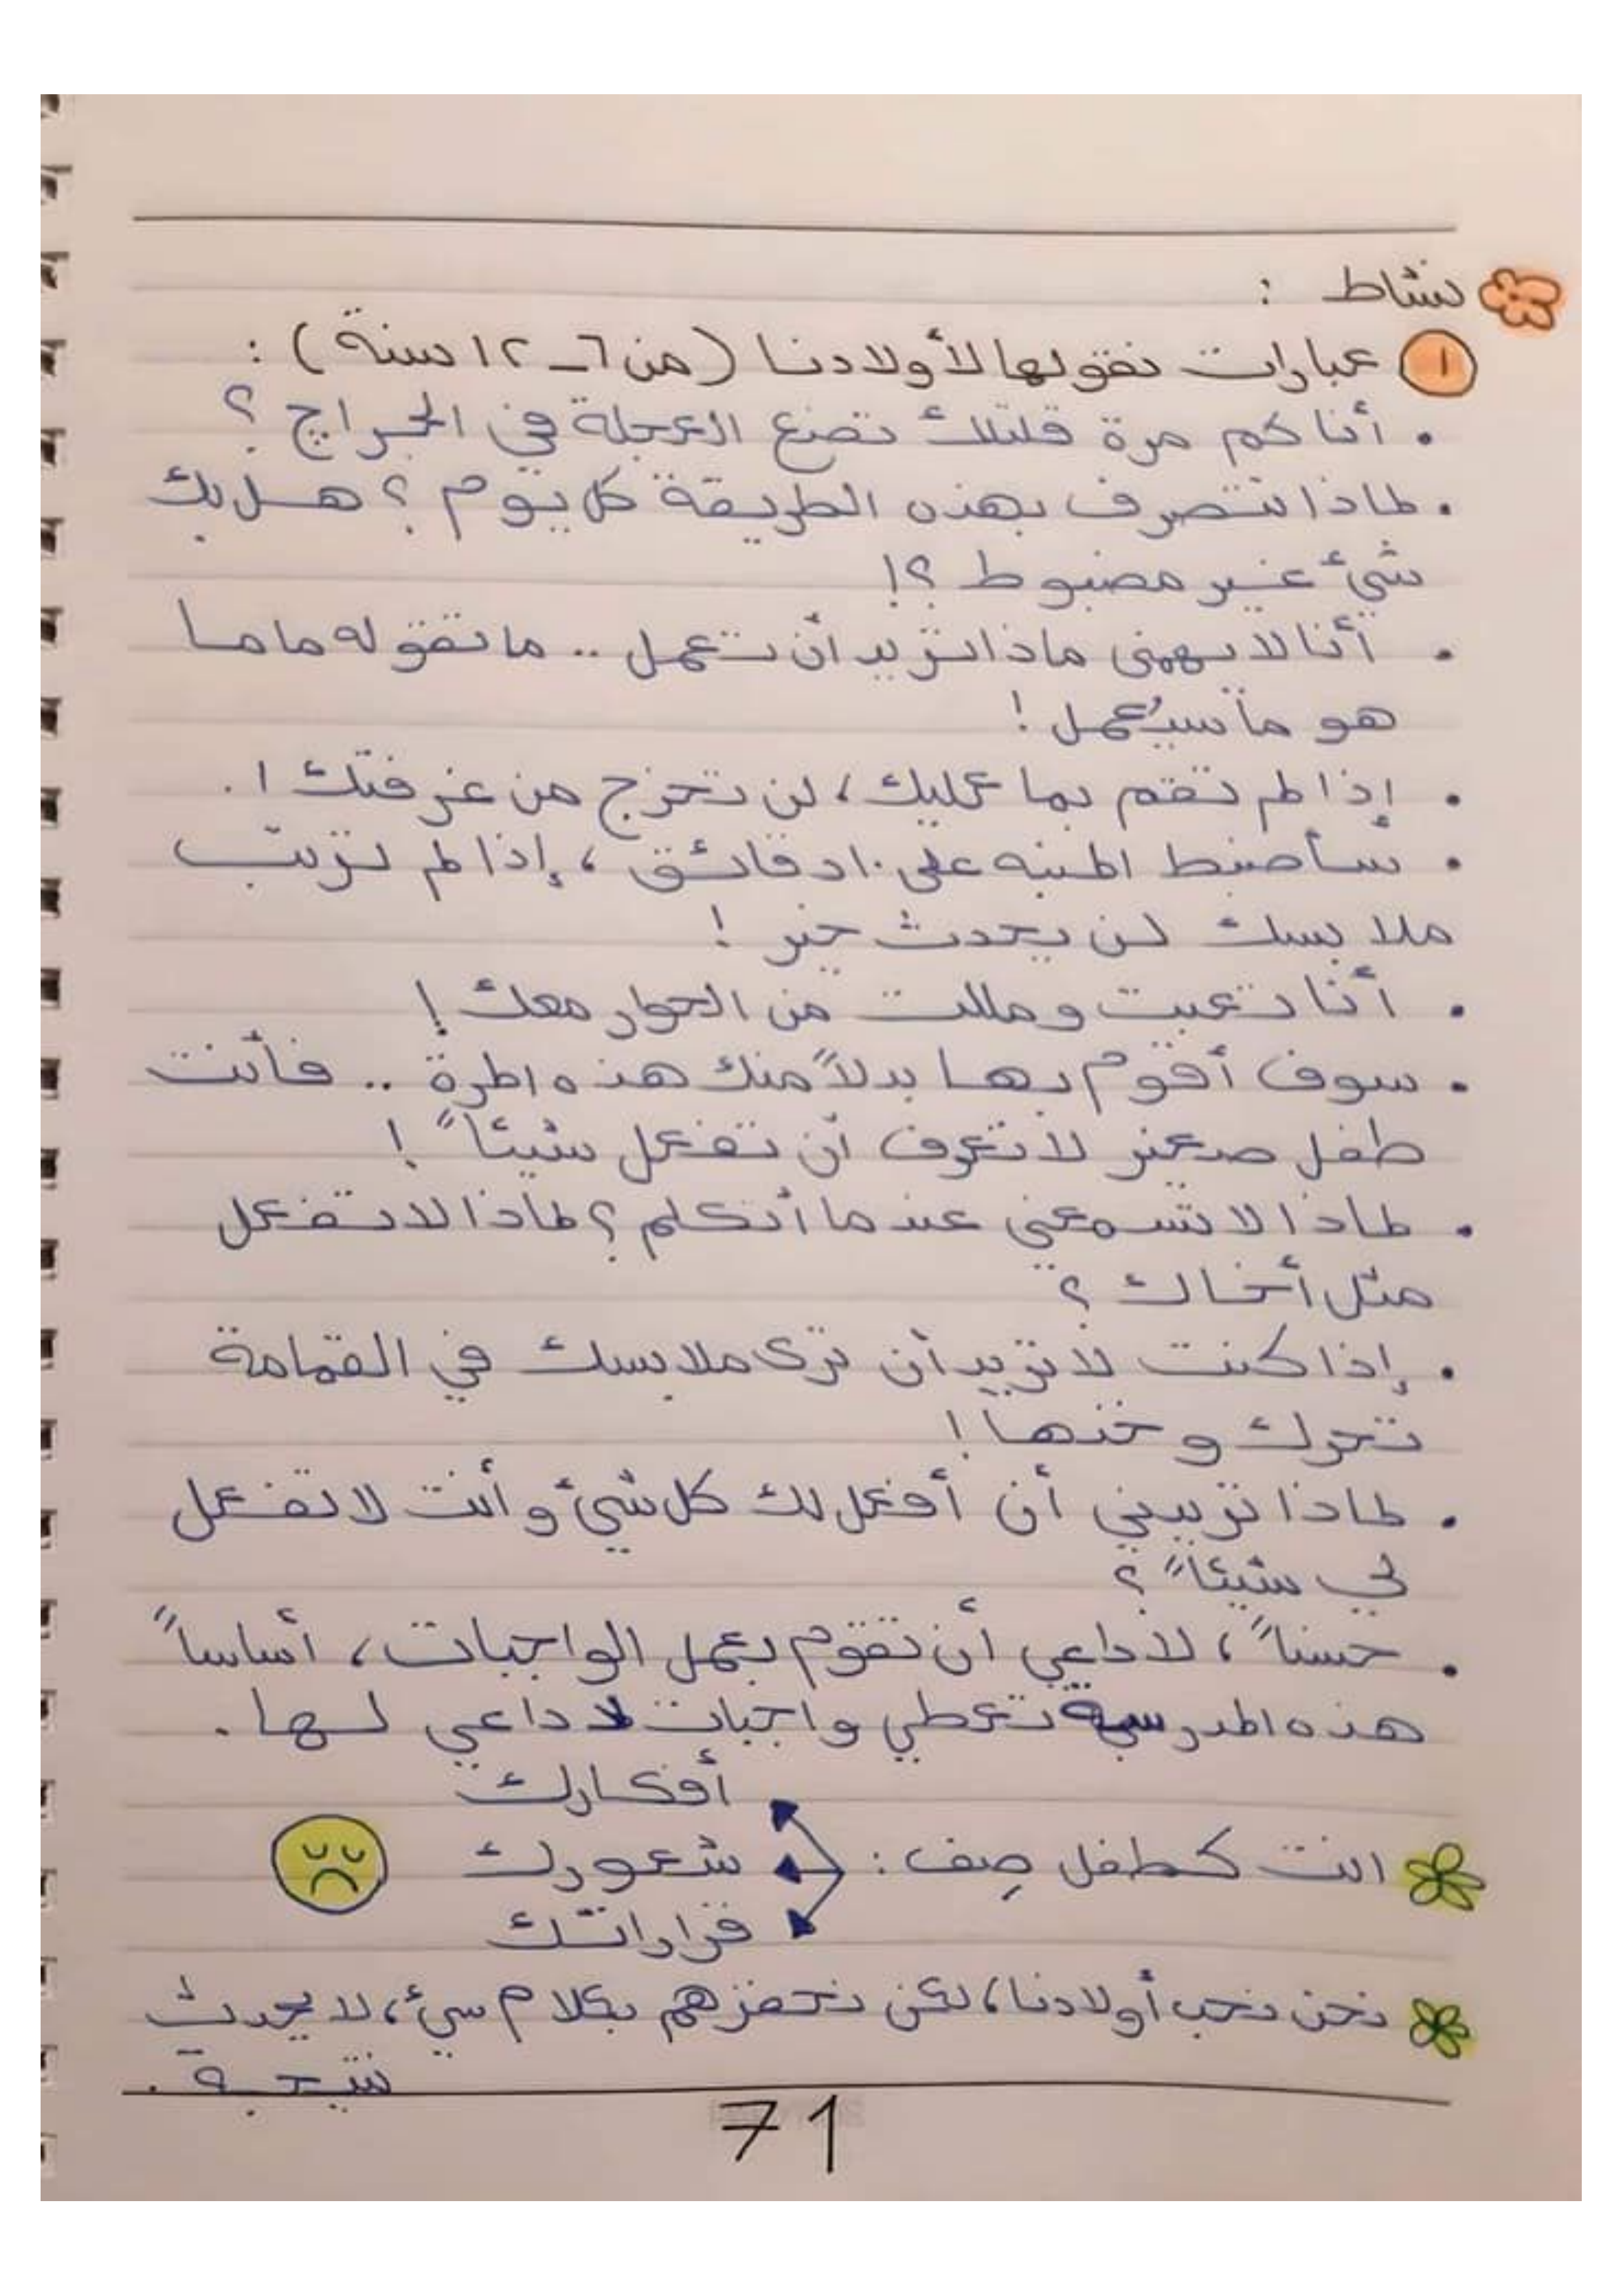 نشاط :
١ عبارات نقولها لأولادنا (من ٦ - ١٢ سنة) :
• أنا كم مرة قلتلك تضع العجلة في الجراج ؟
• لماذا تتصرف بهذه الطريقة كل يوم ؟ هل بك
شيء غير مضبوط ؟!
• أنا لا يهمنى ماذا تريد أن تعمل .. ما تقوله ماما
هو ما سيُعمل !
• إذا لم تقم بما عليك، لن تخرج من غرفتك ! .
• سأضبط المنبه على ١٠ دقائق ، إذا لم ترتب
ملابسك لن يحدث خير !
• أنا تعبت ومللت من الحوار معك !
• سوف أقوم بها بدلاً منك هذه المرة .. فأنت
طفل صغير لا تعرف أن تفعل شيئاً !
• لماذا لا تسمعني عندما أتكلم ؟ لماذا لا تفعل
مثل أخاك ؟
• إذا كنت لا تريد أن ترى ملابسك في القمامة
تحرك وخذها !
• لماذا تريدني أن أفعل لك كل شيء وأنت لا تفعل
لي شيئاً ؟
• حسناً ، لا داعي أن تقوم بعمل الواجبات ، أساساً
هذه المدرسة تعطي واجبات لا داعي لها .
أفكارك
انت كطفل صِف : شعورك
قراراتك
نحن نحب أولادنا، لكن نحفزهم بكلام سيء، لا يحدث
نتيجة .
71